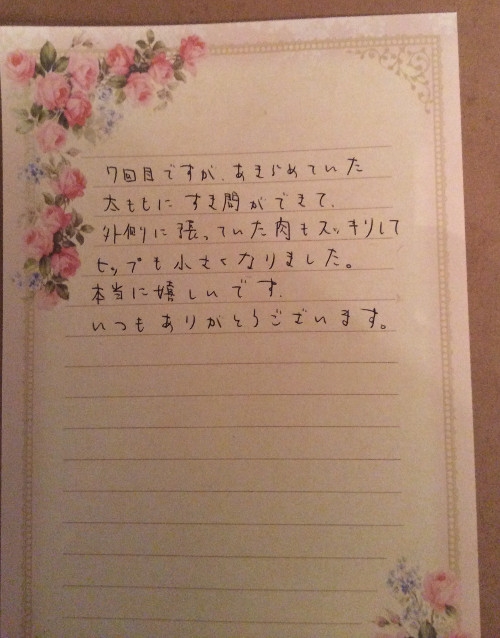 7回目ですが、あきらめていた
太ももに すき間ができて、
外側に張っていた肉もスッキリして
ヒップも小さくなりました。
本当に嬉しいです.
いつもありがとうございます。